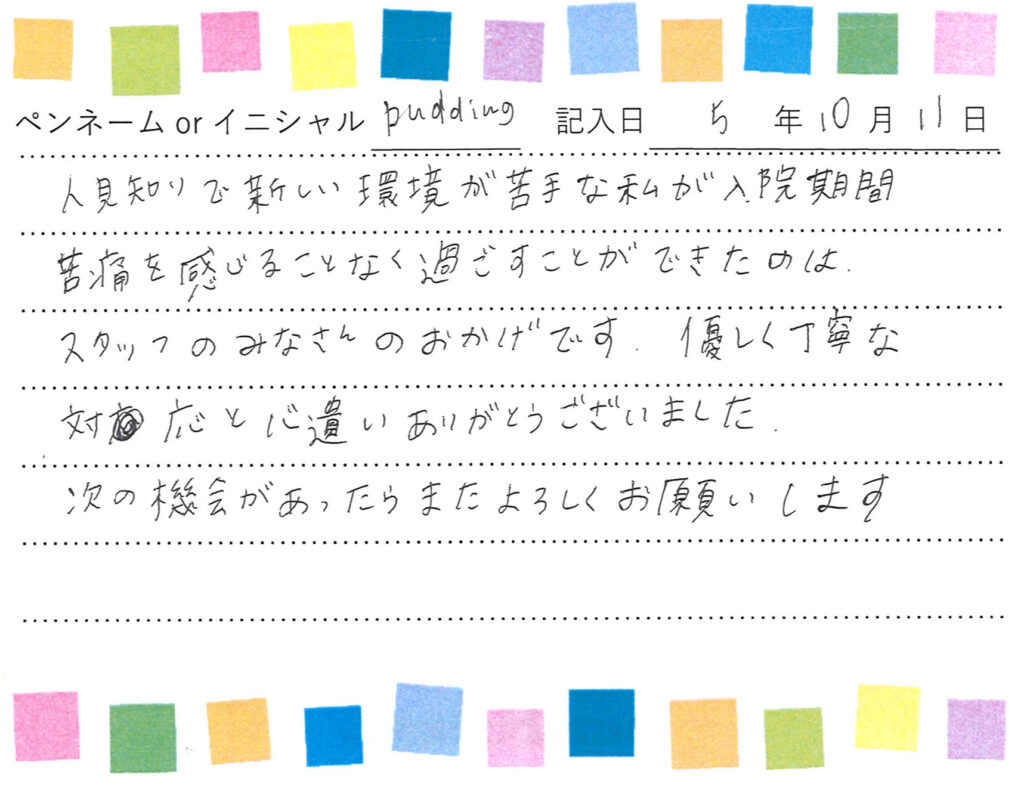 ペンネーム or イニシャル pudding 記入日 5 年 10 月 11 日
人見知りで新しい環境が苦手な私が入院期間
苦痛を感じることなく過ごすことができたのは.
スタッフのみなさんのおかげです. 優しく丁寧な
対応と心遣いありがとうございました.
次の機会があったらまたよろしくお願いします